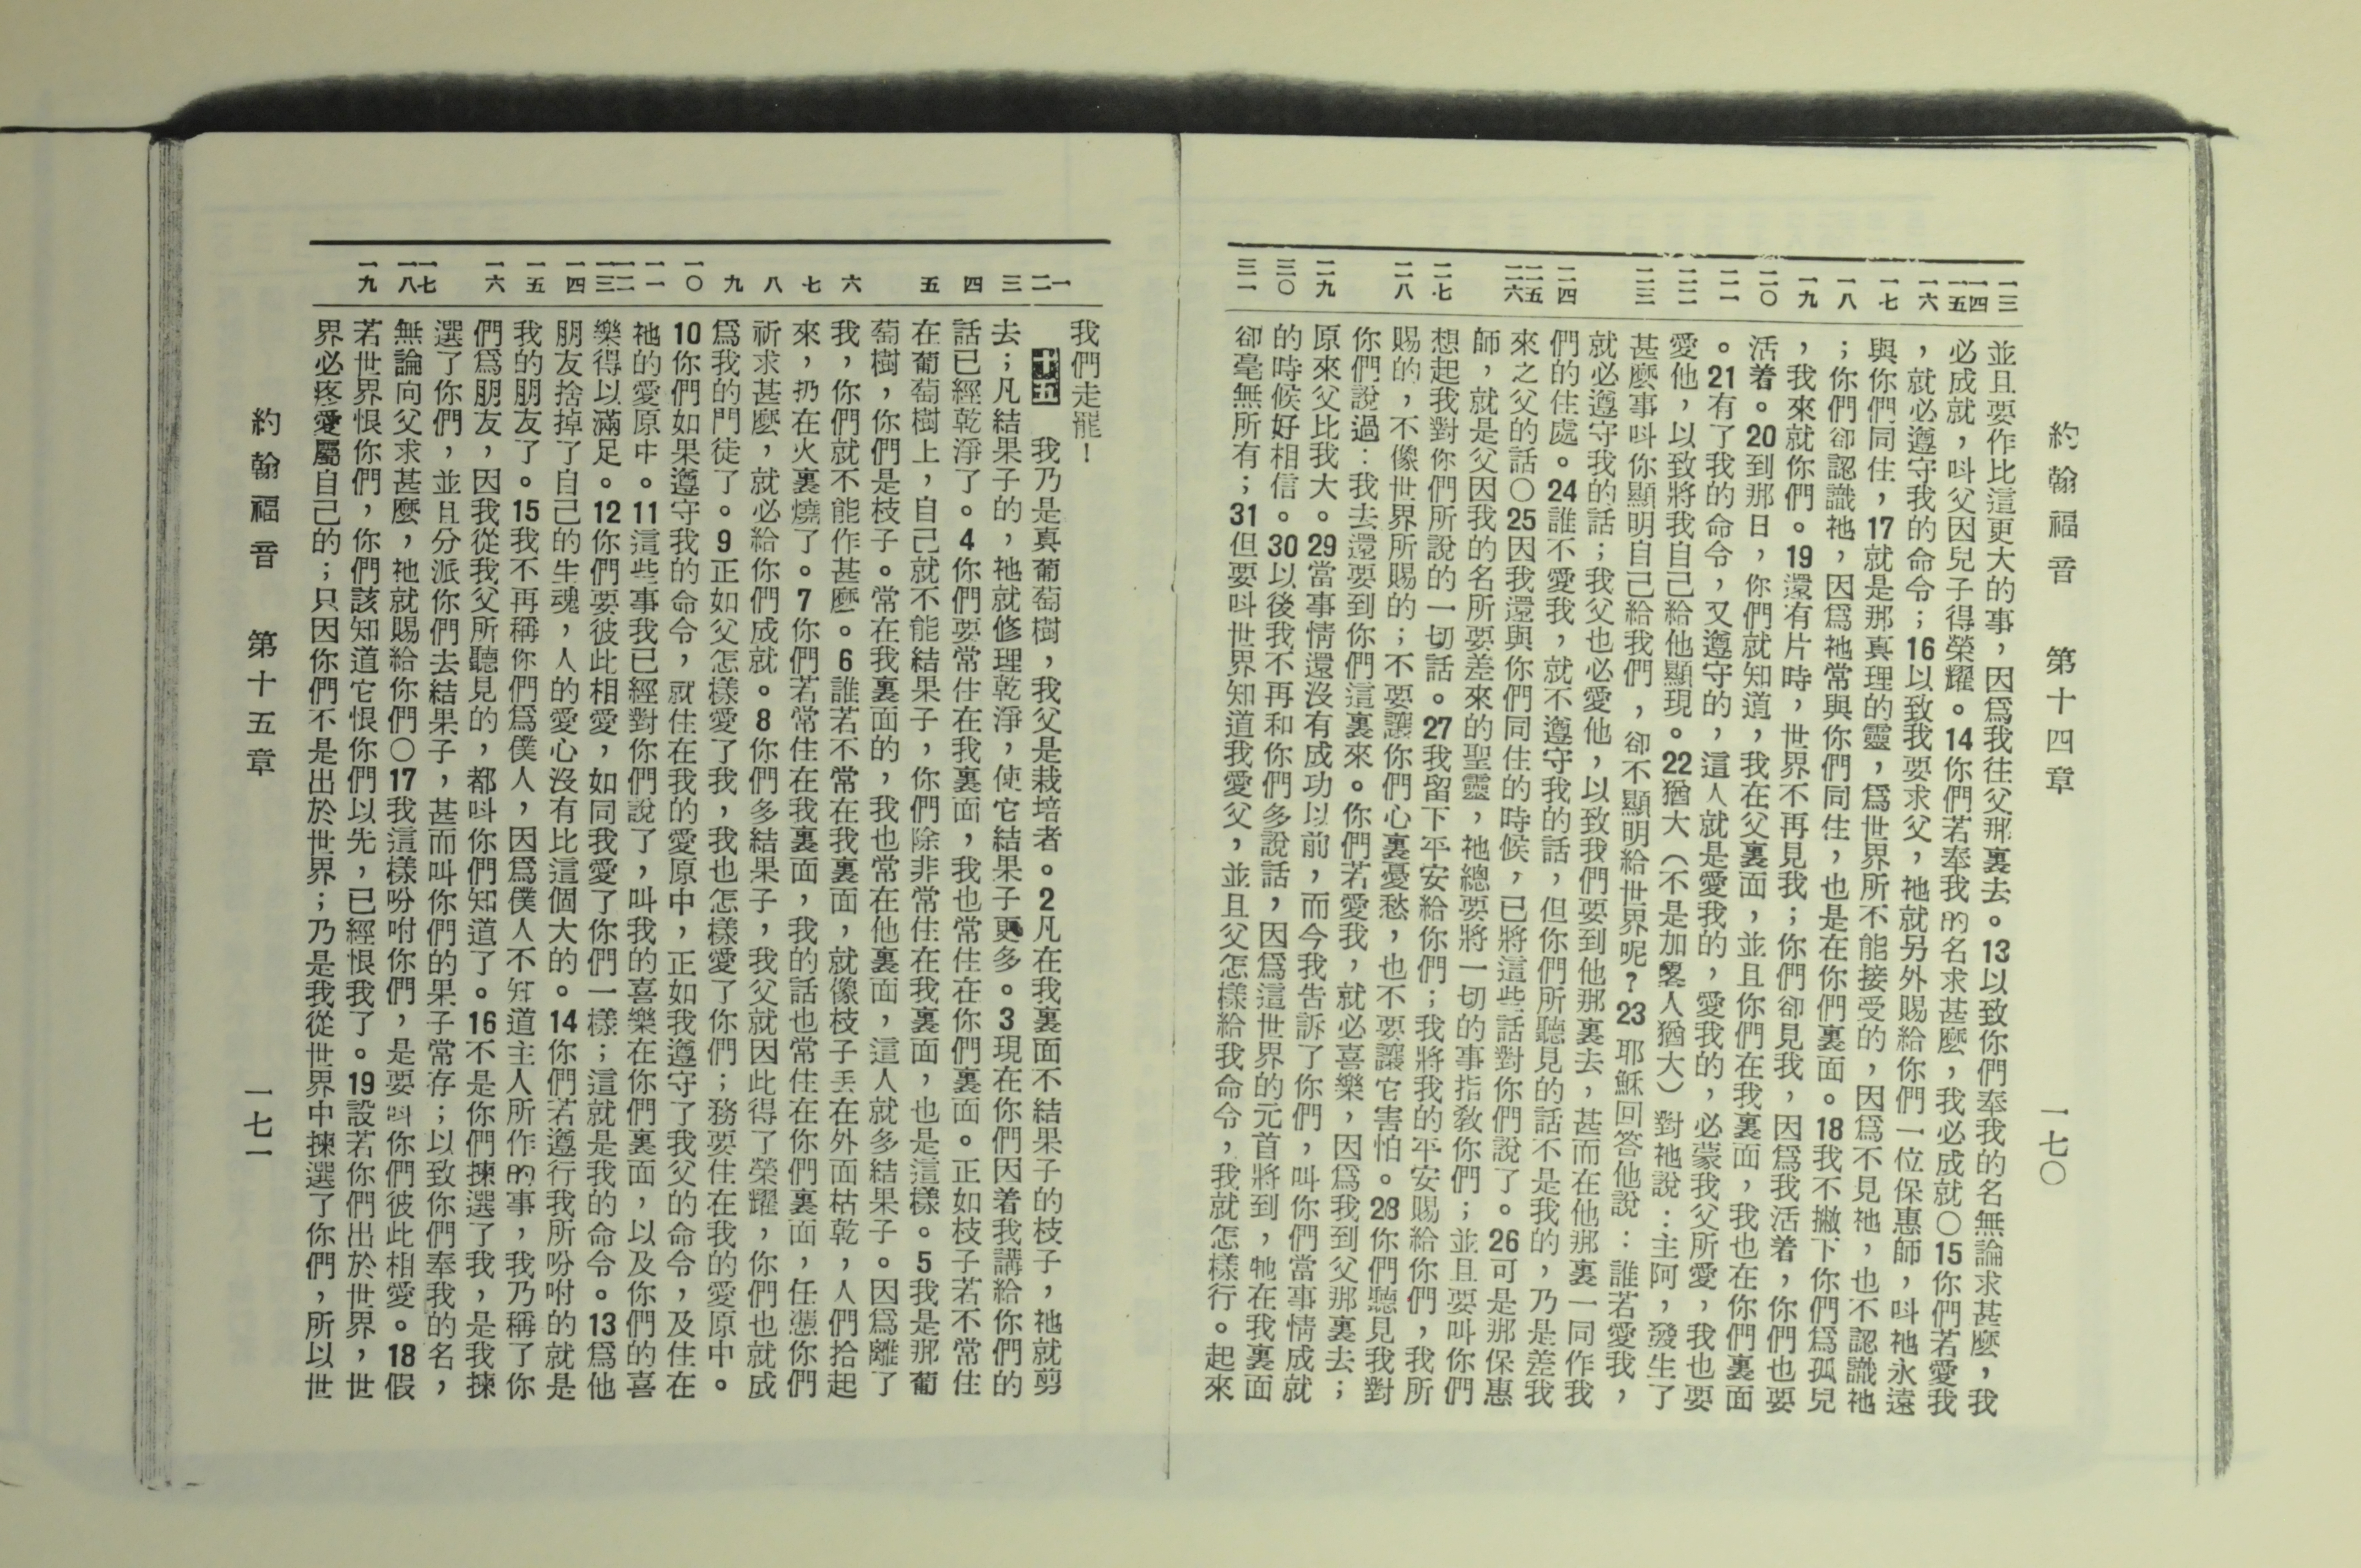 約翰福音　第十四章　一七〇
一三 一四 一五 一六 一七 一八 一九 二〇 二一 二二 二三 二四 二五 二六 二七 二八 二九 三〇 三一
並且要作比這更大的事，因爲我往父那裏去。13以致你們奉我的名無論求甚麼，我
必成就，叫父因兒子得榮耀。14你們若奉我的名求甚麼，我必成就〇15你們若愛我
，就必遵守我的命令；16以致我要求父，祂就另外賜給你們一位保惠師，叫祂永遠
與你們同住，17就是那真理的靈，爲世界所不能接受的，因爲不見祂，也不認識祂
；你們卻認識祂，因爲祂常與你們同住，也是在你們裏面。18我不撇下你們爲孤兒
，我來就你們。19還有片時，世界不再見我；你們卻見我，因爲我活着，你們也要
活着。20到那日，你們就知道，我在父裏面，並且你們在我裏面，我也在你們裏面
。21有了我的命令，又遵守的，這人就是愛我的，愛我的，必蒙我父所愛，我也要
愛他，以致將我自己給他顯現。22猶大（不是加畧人猶大）對祂說：主阿，發生了
甚麼事叫你顯明自己給我們，卻不顯明給世界呢？23耶穌回答他說：誰若愛我，
就必遵守我的話；我父也必愛他，以致我們要到他那裏去，甚而在他那裏一同作我
們的住處。24誰不愛我，就不遵守我的話，但你們所聽見的話不是我的，乃是差我
來之父的話〇25因我還與你們同住的時候，已將這些話對你們說了。26可是那保惠
師，就是父因我的名所要差來的聖靈，祂總要將一切的事指教你們；並且要叫你們
想起我對你們所說的一切話。27我留下平安給你們；我將我的平安賜給你們，我所
賜的，不像世界所賜的；不要讓你們心裏憂愁，也不要讓它害怕。28你們聽見我對
你們說過：我去還要到你們這裏來。你們若愛我，就必喜樂，因爲我到父那裏去；
原來父比我大。29當事情還沒有成功以前，而今我告訴了你們，叫你們當事情成就
的時候好相信。30以後我不再和你們多說話，因爲這世界的元首將到，牠在我裏面
卻毫無所有；31但要叫世界知道我愛父，並且父怎樣給我命令，我就怎樣行。起來
一 二 三 四 五 六 七 八 九 一〇 一一 一二 一三 一四 一五 一六 一七 一八 一九
我們走罷！
十五　我乃是真葡萄樹，我父是栽培者。2凡在我裏面不結果子的枝子，祂就剪
去；凡結果子的，祂就修理乾淨，使它結果子更多。3現在你們因着我講給你們的
話已經乾淨了。4你們要常住在我裏面，我也常住在你們裏面。正如枝子若不常住
在葡萄樹上，自己就不能結果子，你們除非常住在我裏面，也是這樣。5我是那葡
萄樹，你們是枝子。常在我裏面的，我也常在他裏面，這人就多結果子。因爲離了
我，你們就不能作甚麼。6誰若不常在我裏面，就像枝子丟在外面枯乾，人們拾起
來，扔在火裏燒了。7你們若常住在我裏面，我的話也常住在你們裏面，任憑你們
祈求甚麼，就必給你們成就。8你們多結果子，我父就因此得了榮耀，你們也就成
爲我的門徒了。9正如父怎樣愛了我，我也怎樣愛了你們；務要住在我的愛原中。
10你們如果遵守我的命令，就住在我的愛原中，正如我遵守了我父的命令，及住在
祂的愛原中。11這些事我已經對你們說了，叫我的喜樂在你們裏面，以及你們的喜
樂得以滿足。12你們要彼此相愛，如同我愛了你們一樣；這就是我的命令。13爲他
朋友捨掉了自己的生魂，人的愛心沒有比這個大的。14你們若遵行我所吩咐的就是
我的朋友了。15我不再稱你們爲僕人，因爲僕人不知道主人所作的事，我乃稱了你
們爲朋友，因我從我父所聽見的，都叫你們知道了。16不是你們揀選了我，是我揀
選了你們，並且分派你們去結果子，甚而叫你們的果子常存；以致你們奉我的名，
無論向父求甚麼，祂就賜給你們〇17我這樣吩咐你們，是要叫你們彼此相愛。18假
若世界恨你們，你們該知道它恨你們以先，已經恨我了。19設若你們出於世界，世
界必疼愛屬自己的；只因你們不是出於世界；乃是我從世界中揀選了你們，所以世
約翰福音　第十五章　一七一